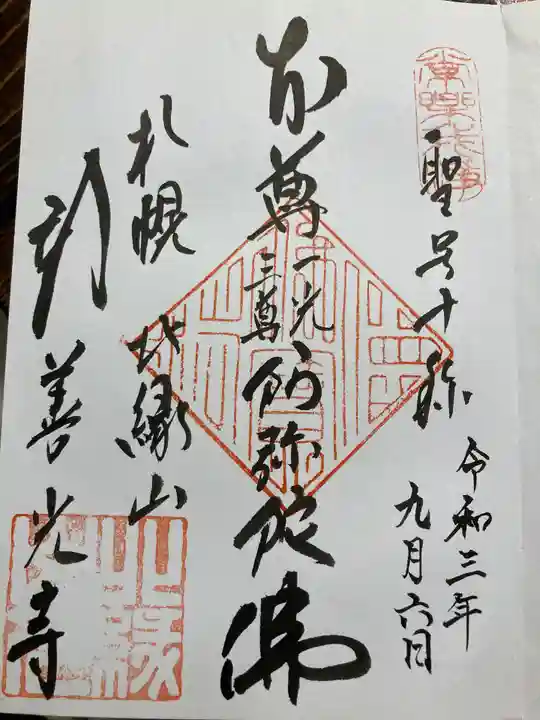 聖号十称
令和三年
九月六日
本尊一光三尊阿弥陀佛
札幌 北縁山
新善光寺